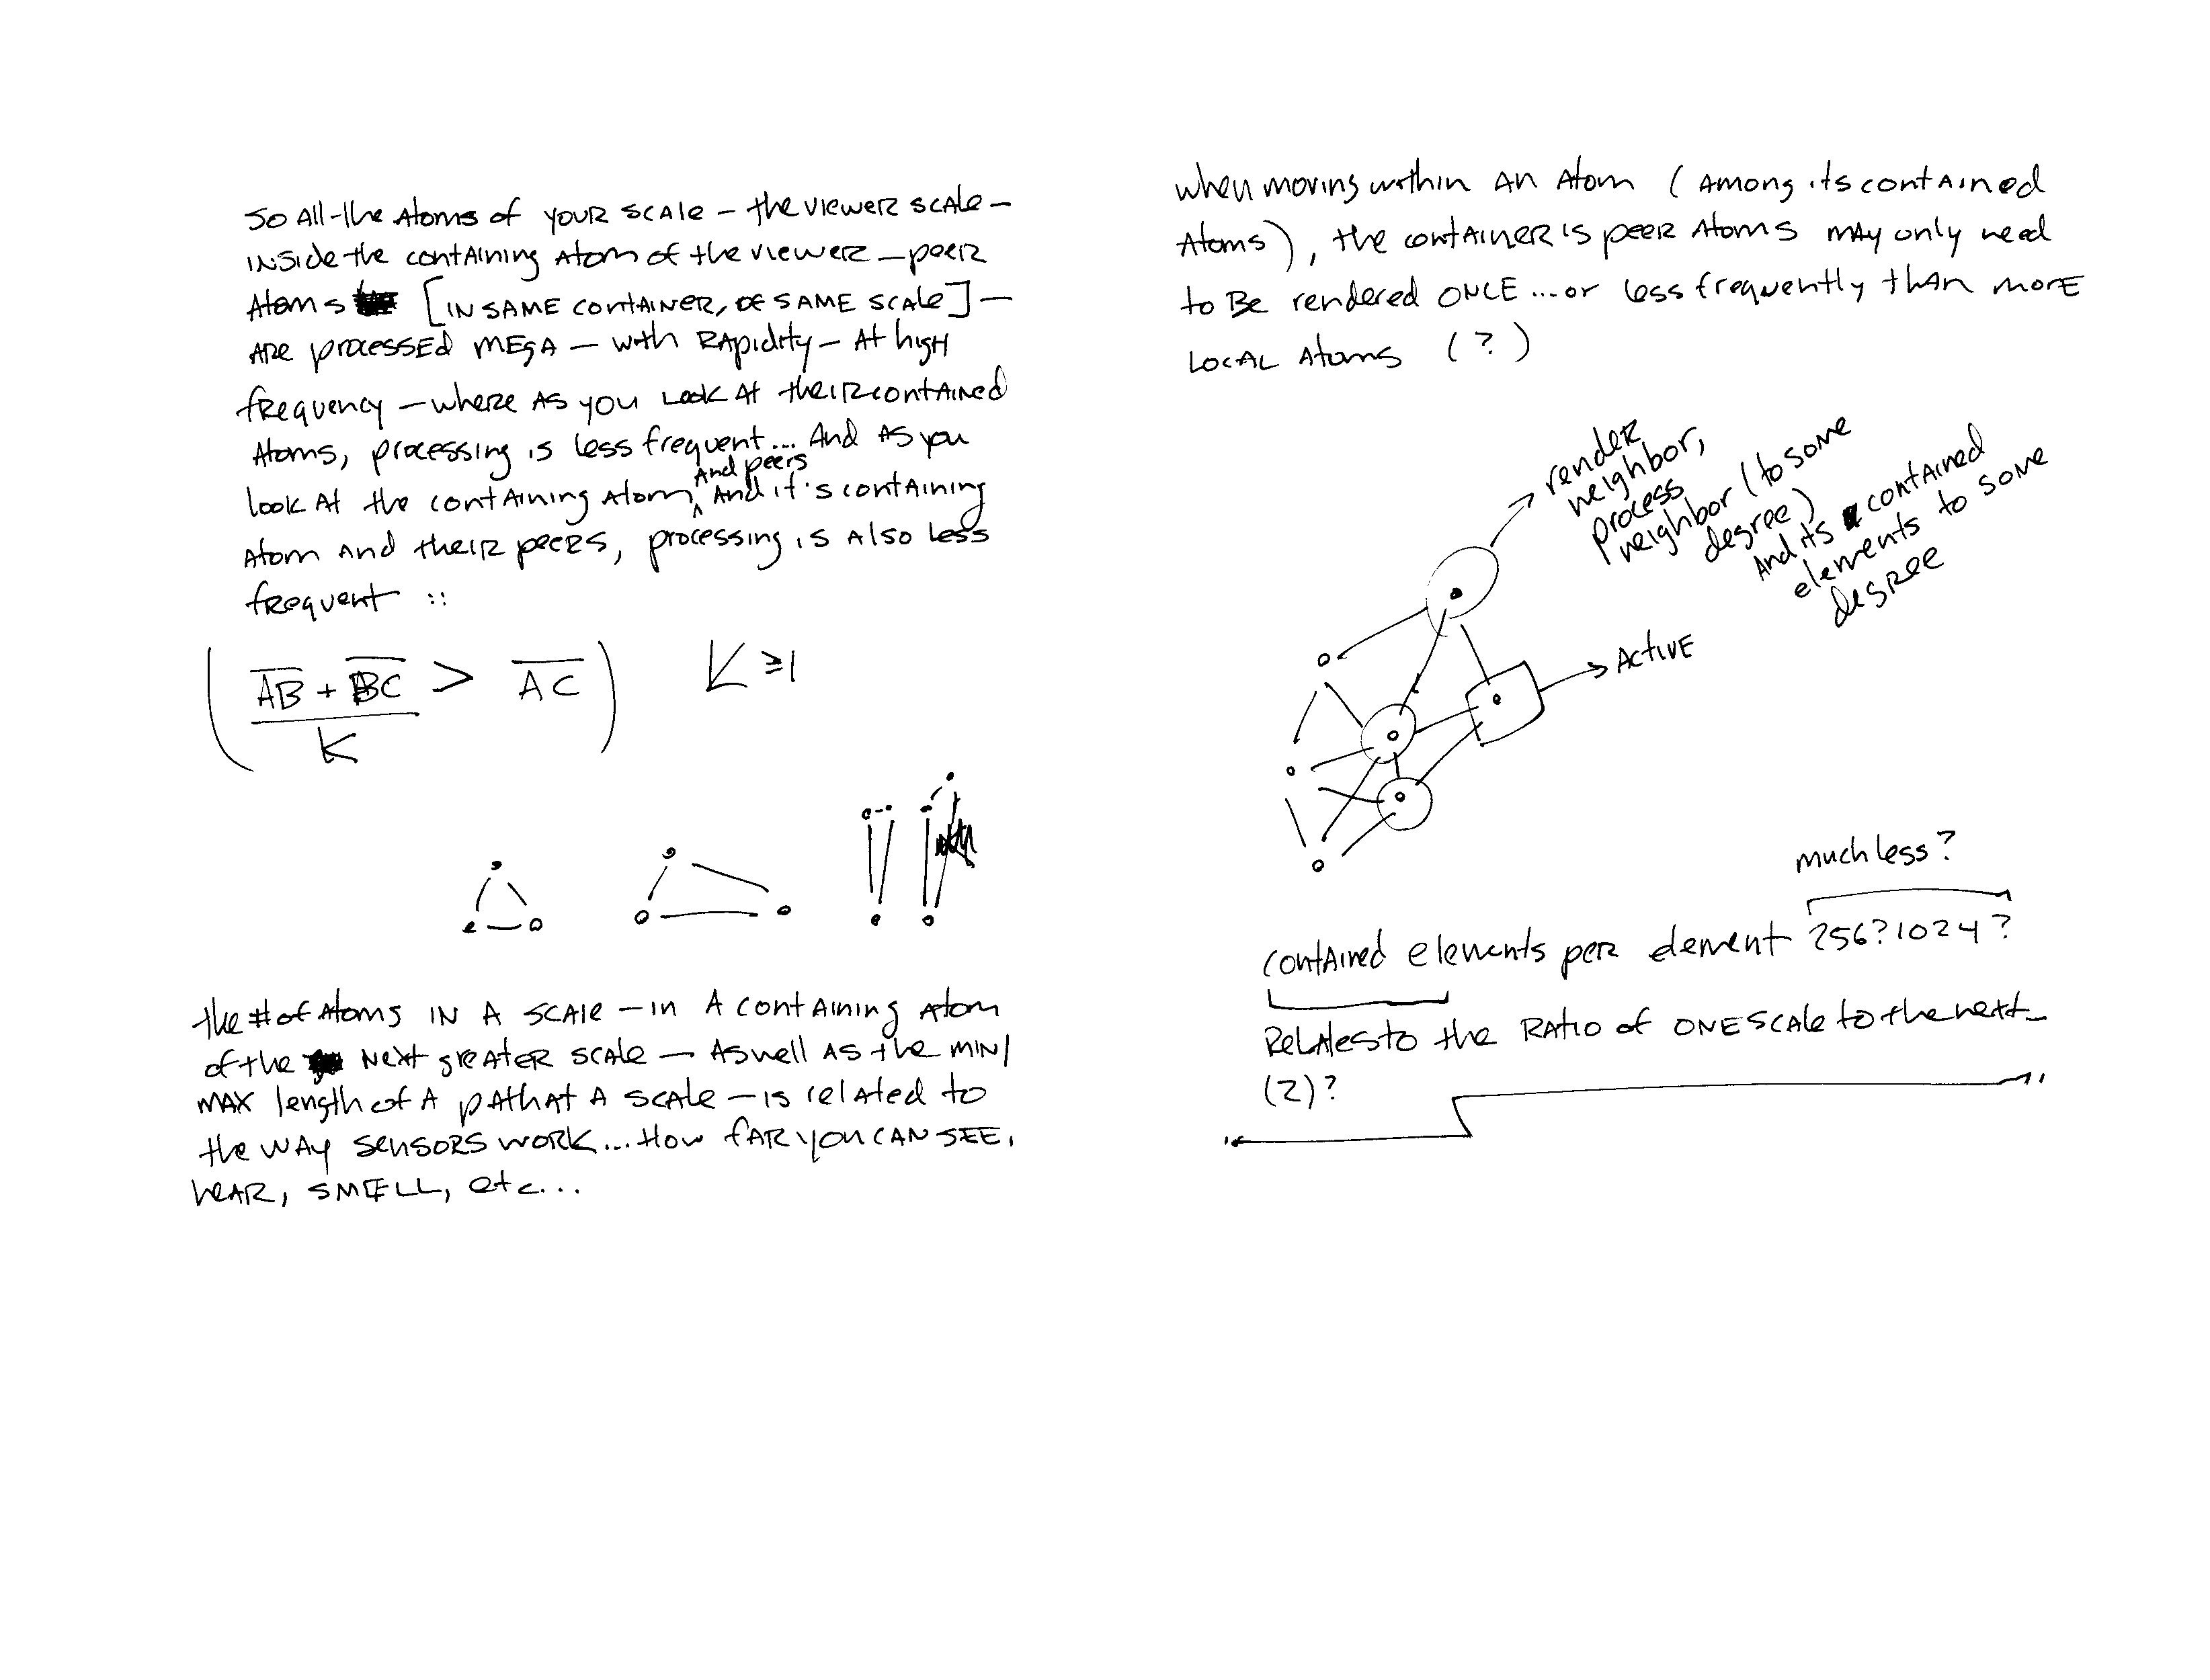 So All the Atoms of your scale – the viewer scale –
inside the containing Atom of the viewer – peer
Atoms [in same container, of same scale] –
are processed mega – with rapidity – at high
frequency – where as you look at their contained
Atoms, processing is less frequent... And as you
And peers
look at the containing Atom, ^ And it's containing
Atom and their peers, processing is also less
frequent ::
( (AB + BC) / K > AC ) K ≥ 1
the # of Atoms in a scale – in a containing Atom
of the next greater scale – as well as the min/
max length of a path at a scale – is related to
the way sensors work... How far you can see,
hear, smell, etc...
when moving within an Atom (among its contained
Atoms), the container's peer Atoms may only need
to be rendered once ... or less frequently than more
local Atoms (?)
render
neighbor,
process
neighbor (to some
degree)
And its contained
elements to some
degree
Active
much less?
contained elements per element 256? 1024?
Relates to the ratio of one scale to the next –
(2)?